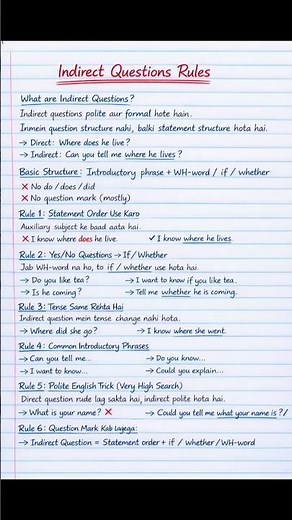 Indirect Questions Rules
What are Indirect Questions?
Indirect questions polite aur formal hote hain.
Inmein question structure nahi, balki statement structure hota hai.
→ Direct: Where does he live?
→ Indirect: Can you tell me where he lives?
Basic Structure: Introductory phrase + WH-word / if / whether
❌ No do / does / did
❌ No question mark (mostly)
Rule 1: Statement Order Use Karo
Auxiliary subject ke baad aata hai.
❌ I know where does he live. ✓ I know where he lives.
Rule 2: Yes/No Questions → If/Whether
Jab WH-word na ho, to if / whether use hota hai.
→ Do you like tea? → I want to know if you like tea.
→ Is he coming? → Tell me whether he is coming.
Rule 3: Tense Same Rehta Hai
Indirect question mein tense change nahi hota.
→ Where did she go? → I know where she went.
Rule 4: Common Introductory Phrases
→ Can you tell me... → Do you know...
→ I want to know... → Could you explain...
Rule 5: Polite English Trick (Very High Search)
Direct question rude lag sakta hai, indirect polite hota hai.
→ What is your name? ❌ → Could you tell me what your name is?/
Rule 6: Question Mark Kab Lagega:
→ Indirect Question = Statement order + if / whether / WH-word